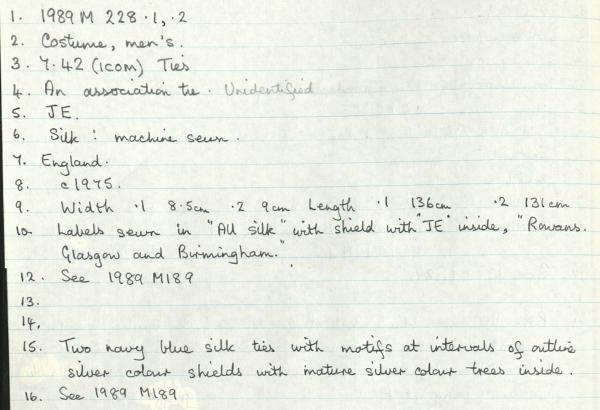 1. 1989 M 228 .1, .2
2. Costume, men's.
3. 7.42 (ICOM) Ties
4. An association tie. Unidentified
5. JE.
6. Silk: machine sewn.
7. England.
8. c1975.
9. Width .1 8.5cm .2 9cm Length .1 136cm .2 131cm
10. Labels sewn in "All silk" with shield with "JE" inside, "Rowans.
Glasgow and Birmingham."
12. See 1989 M189
13.
14.
15. Two navy blue silk ties with motifs at intervals of outline
silver colour shields with mature silver colour trees inside.
16. See 1989 M189